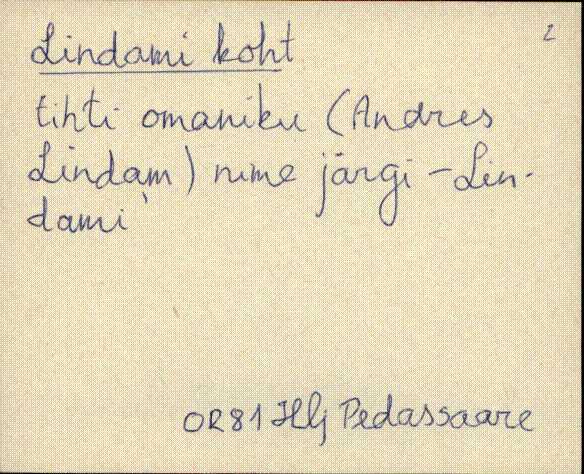 2
Lindami koht
tihti omaniku (Andres
Lindam) nime järgi – Lin-
dami`
OR81 Hlj Pedassaare